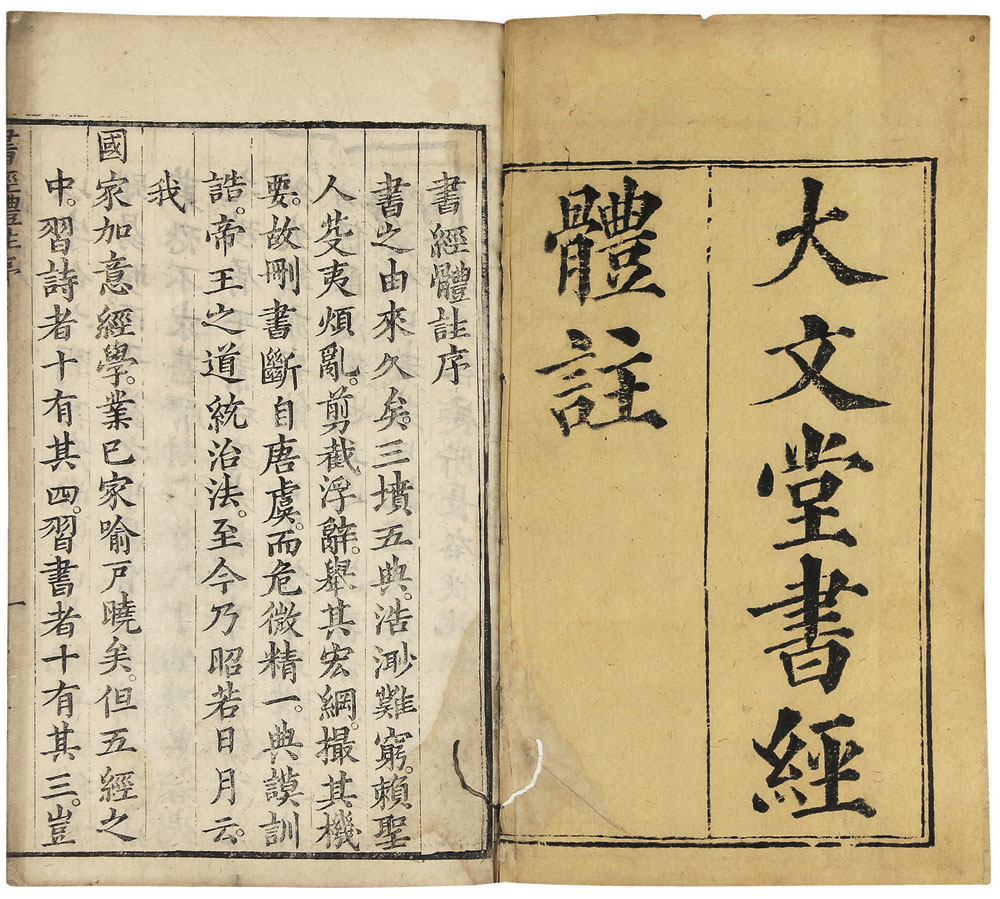 大文堂書經
體註
書經體註序
書之由來久矣。三墳五典。浩渺難窮。賴聖
人芟夷煩亂。剪截浮辭。舉其宏綱。撮其機
要。故刪書斷自唐虞。而危微精一。典謨訓
誥。帝王之道統治法。至今乃昭若日月云。
我
國家加意經學。業已家喻戶曉矣。但五經之
中。習詩者十有其四。習書者十有其三。豈
書經體註序
一